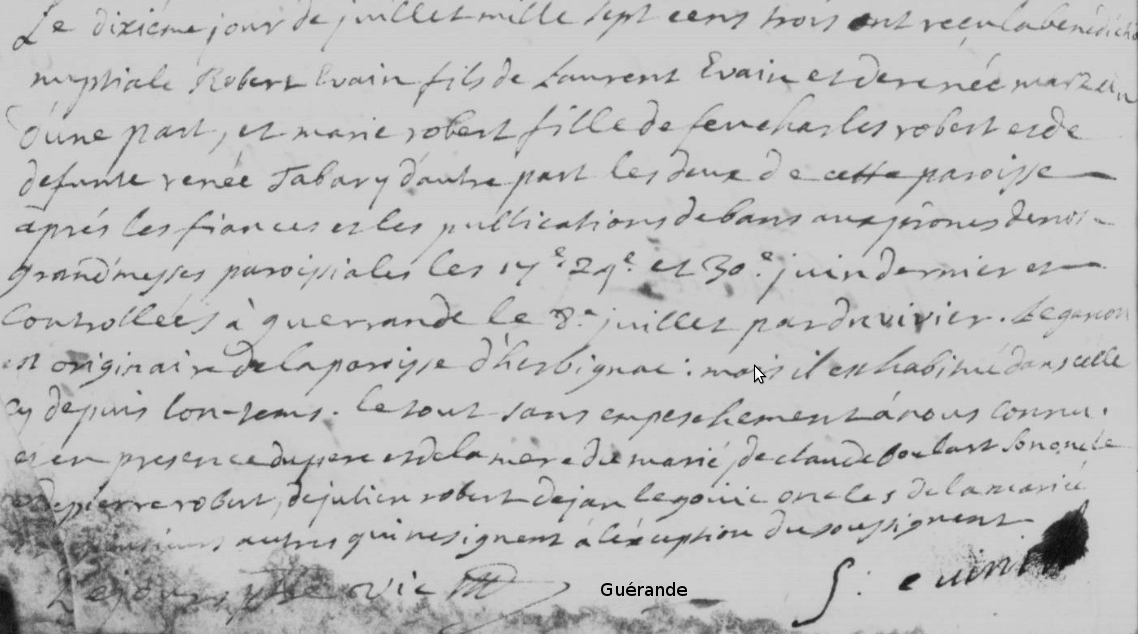 Le dixiéme jour de juillet mille sept cens trois ont reçu la bénédictio
nuptiale Robert Evain fils de Laurent Evain et de renée
d'une part, et marie robert fille de feu charles robert et de
defunte renée Tabary d'autre part les deux de cette paroisse
aprés les fiances et les publications de bans aux prônes de nos
grand'messes paroissiales les 17e 24e et 30e juin dernier et
Controllées à guerrande le 8e juillet par duvivier. Le garcon
est originaire de la paroisse d'herbignac : mais il est habitué dans celle
cy depuis lon-tems. le tout sans empeschement à nous connu.
et en presence du pere et de la mere du marié, de claude son oncle
de pierre robert, de julien robert de jan oncles de la mariée
et plusieurs autres qui ne signent à l'éxception du soussignent
Guérande